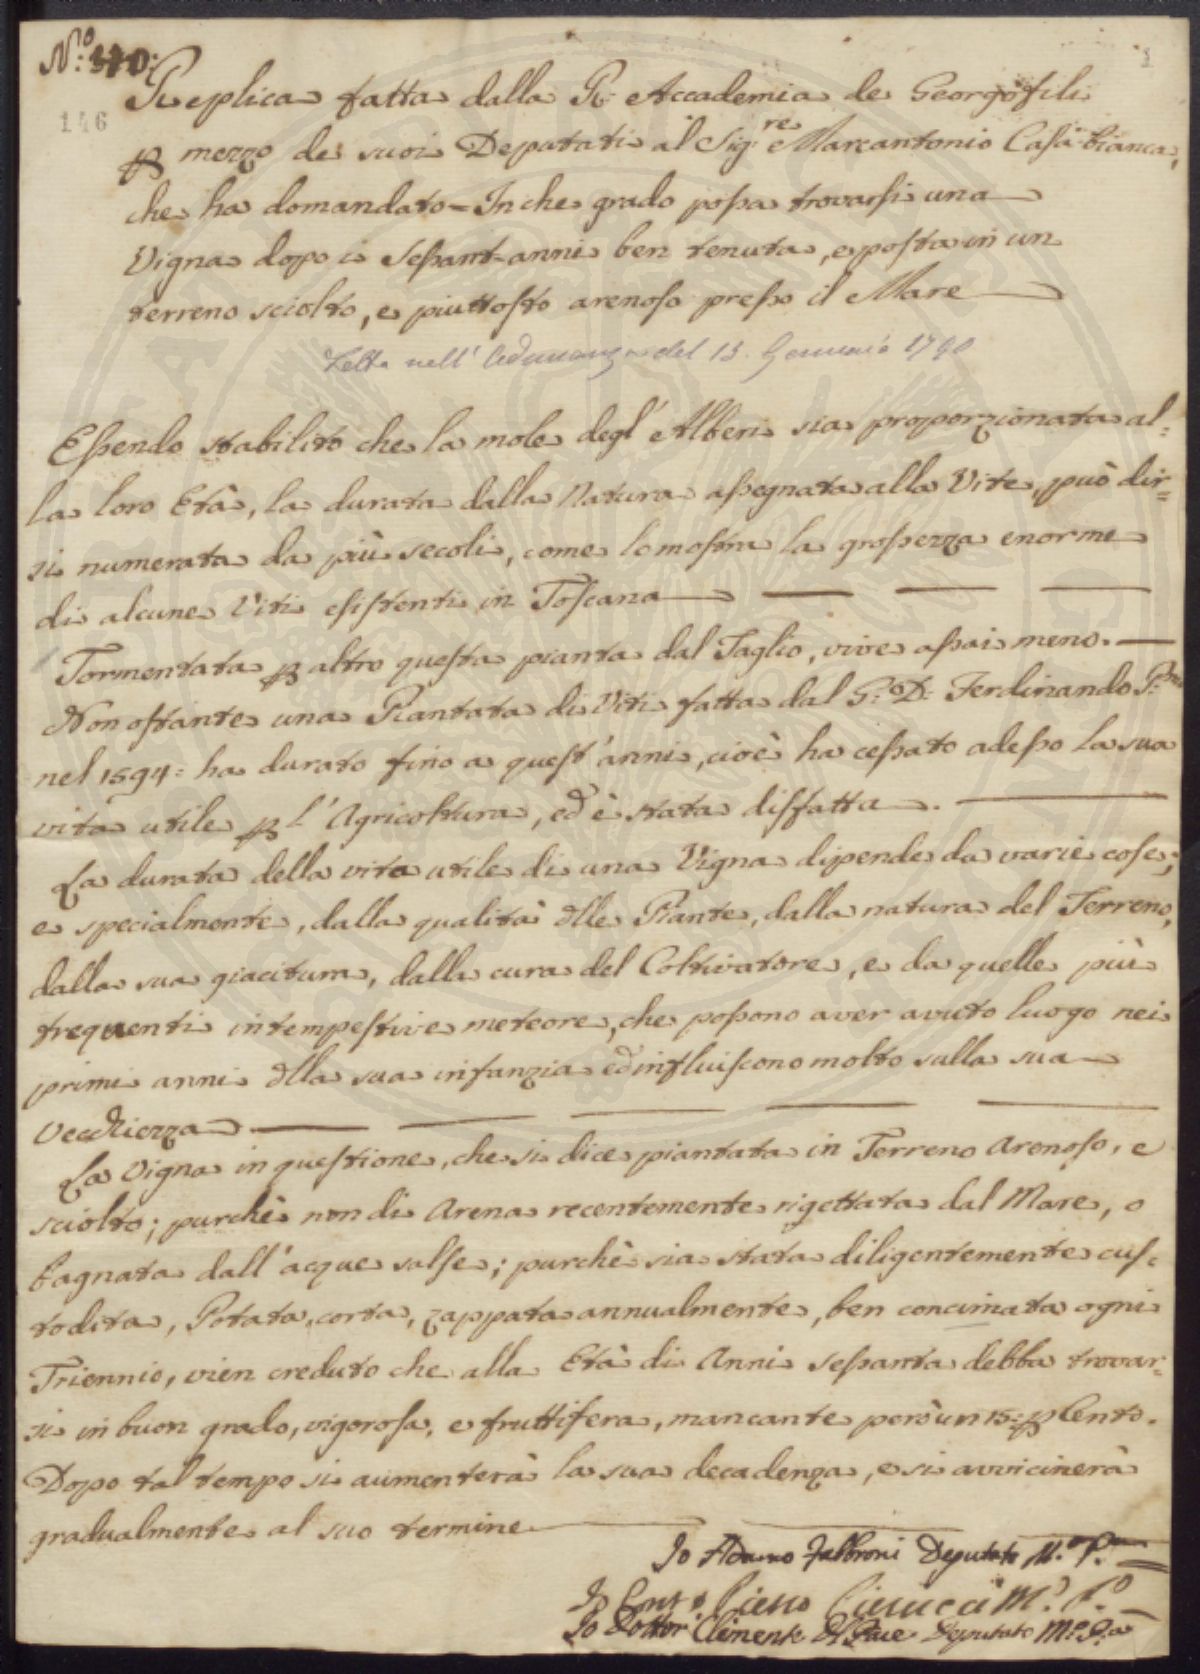 N.º 310:
1
146
Replica fatta dalla R. Accademia de Georgofili
p mezzo de suoi Deputati al Sig:re Marcantonio Casa-bianca,
che ha domandato = In che grado possa trovarsi una
Vigna dopo i Sessant-anni ben tenuta, e posta in un
terreno sciolto, e piuttosto arenoso presso il Mare
Letta nell' Adunanza del 13. Gennaio 1790
Essendo stabilito che la mole degl' Alberi sia proporzionata al=
la loro Età, la durata dalla Natura assegnata alla Vite, può dir=
si numerata da più secoli, come lo mostra la grossezza enorme
di alcune Viti esistenti in Toscana
Tormentata p altro questa pianta dal Taglio, vive assai meno.
Non ostante una Piantata di Viti fatta dal G: D: Ferdinando P:mo
nel 1594: ha durato fino a quest' anni, cioè ha cessato adesso la sua
vita utile p l' Agricoltura, ed è stata disfatta.
La durata della vita utile di una Vigna dipende da varie cose;
e specialmente, dalla qualità dlle Piante, dalla natura del Terreno,
dalla sua giacitura, dalla cura del Coltivatore, e da quelle più
frequenti intempestive meteore, che possono aver avuto luogo nei
primi anni dlla sua infanzia ed influiscono molto sulla sua
Vecchiezza
La Vigna in questione, che si dice piantata in Terreno Arenoso, e
sciolto; purchè non di Arena recentemente rigettata dal Mare, o
bagnata dall' acque salse; purchè sia stata diligentemente cus=
todita, Potata, corta, zappata annualmente, ben concimata ogni
Triennio, vien creduto che alla Età di Anni sessanta debba trovar=
si in buon grado, vigorosa, e fruttifera, mancante però un 15: p Cento.
Dopo tal tempo si aumenterà la sua decadenza, e si avvicinerà
gradualmente al suo termine
Io Adamo Fabbroni Deputato M.º P.
Io Pietro M.º P.º
Io Dottor Clemente Del Pace Deputato M.º P.ª